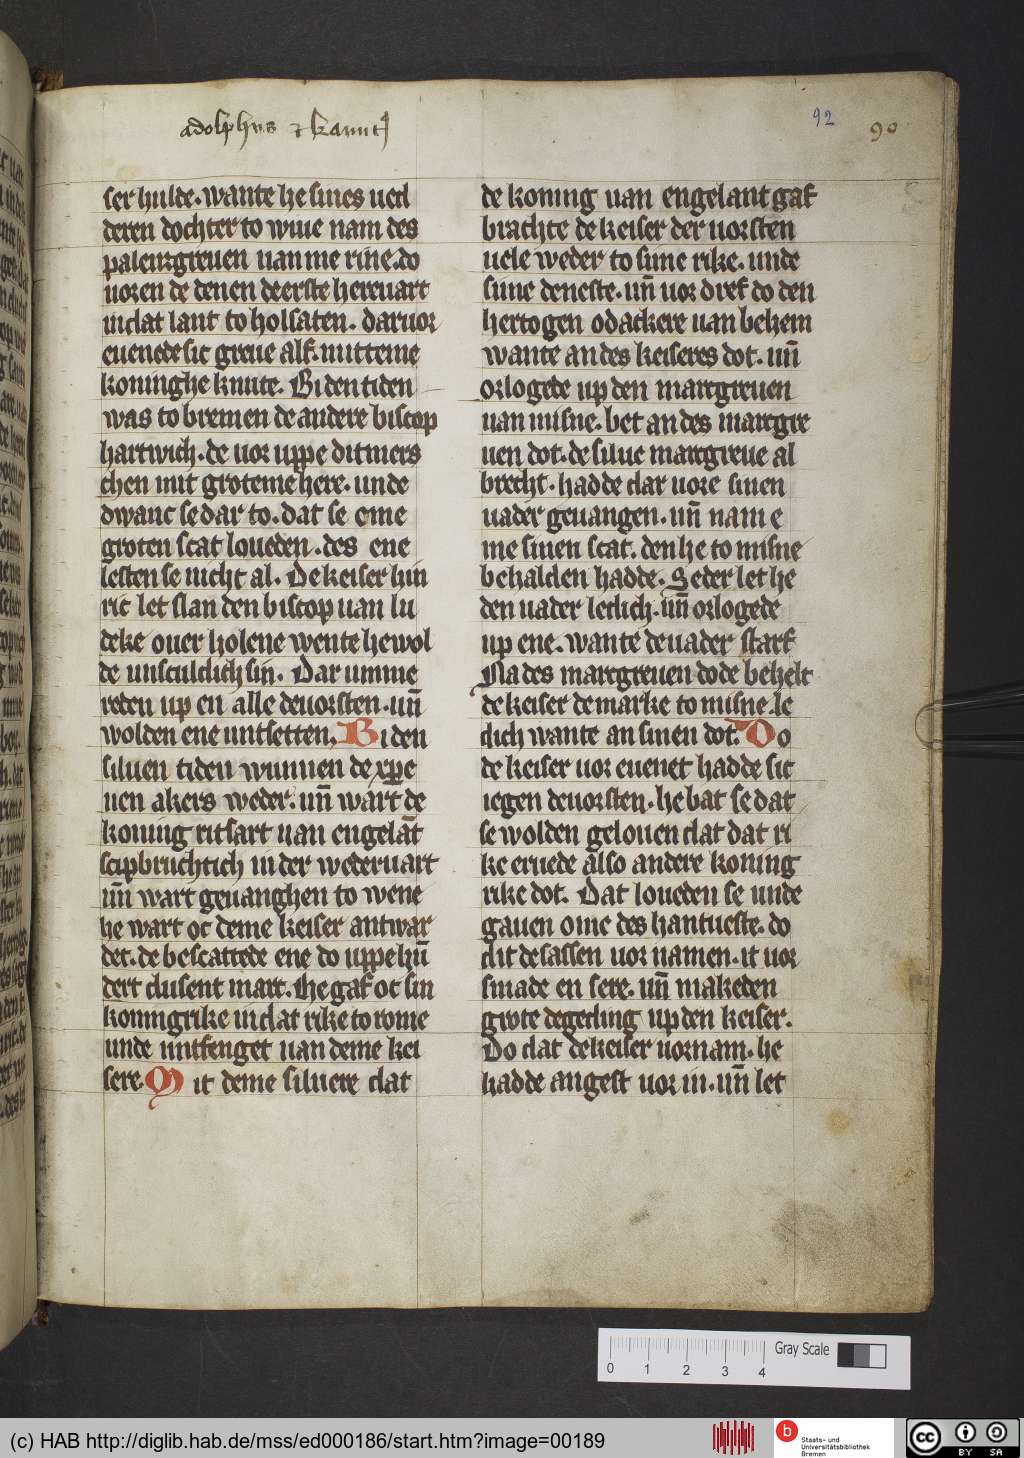 adolphus ⁊ kanutj
92
90
ser hulde. wante he sines ued
deren dochter to wiue nam des
palenzgreuen uanme rine. do
uoren de denen de erste hereuart
in dat lant to holsaten. daruor
euenede sic greue alf. mitteme
koninghe knute. Bi den tiden
was to bremen de andere biscop
hartwich. de uor uppe ditmers
chen mit groteme here. unde
dwanc se dar to. dat se eme
groten scat loueden. des ene
lesten se nicht al. De keiser hin
ric let slan den biscop uan lu
deke ouer holene wente he wol
de unsculdich sin. Dar umme
reden up en alle de uorsten. un̄
wolden ene untsetten. Bi den
siluen tiden wunnen de xp̄e
nen akers weder. un̄ wart de
koning ritsart uan engelāt
scipbruchtich in der wederuart
un̄ wart geuanghen to wene
he wart oc deme keiser antwar
det. de bescattede ene do uppe hū
dert dusent marc. he gaf oc sin
koningrike in dat rike to rome
unde untfenget uan deme kei
sere. Mit deme siluere dat
de koning uan engelant gaf
brachte de keiser der uorsten
uele weder to sime rike. unde
sime deneste. un̄ uor dref do den
hertogen odackere uan behem
wante an des keiseres dot. un̄
orlogede up den marcgreuen
uan misne. bet an des marcgre
uen dot. de silue marcgreue al
brecht. hadde dar uore sinen
uader geuangen. un̄ nam e
me sinen scat. den he to misne
behalden hadde. Seder let he
den uader ledich. un̄ orlogede
up ene. wante de uader starf
Na des marcgreuen dode behelt
de keiser de marke to misne. le
dich wante an sinen dot. Do
de keiser uor euenet hadde sic
iegen de uorsten. he bat se dat
se wolden gelouen dat dat ri
ke eruede also andere koning
rike dot. Dat loueden se unde
gauen ome des hantueste. do
dit de sassen uor namen. it uor
smade en sere. un̄ makeden
grote degeding up den keiser.
Do dat de keiser uornam. he
hadde angest uor in. un̄ let
Gray Scale
0 1 2 3 4
(c) HAB http://diglib.hab.de/mss/ed000186/start.htm?image=00189
b
Staats- und
Universitätsbibliothek
Bremen
cc
BY SA